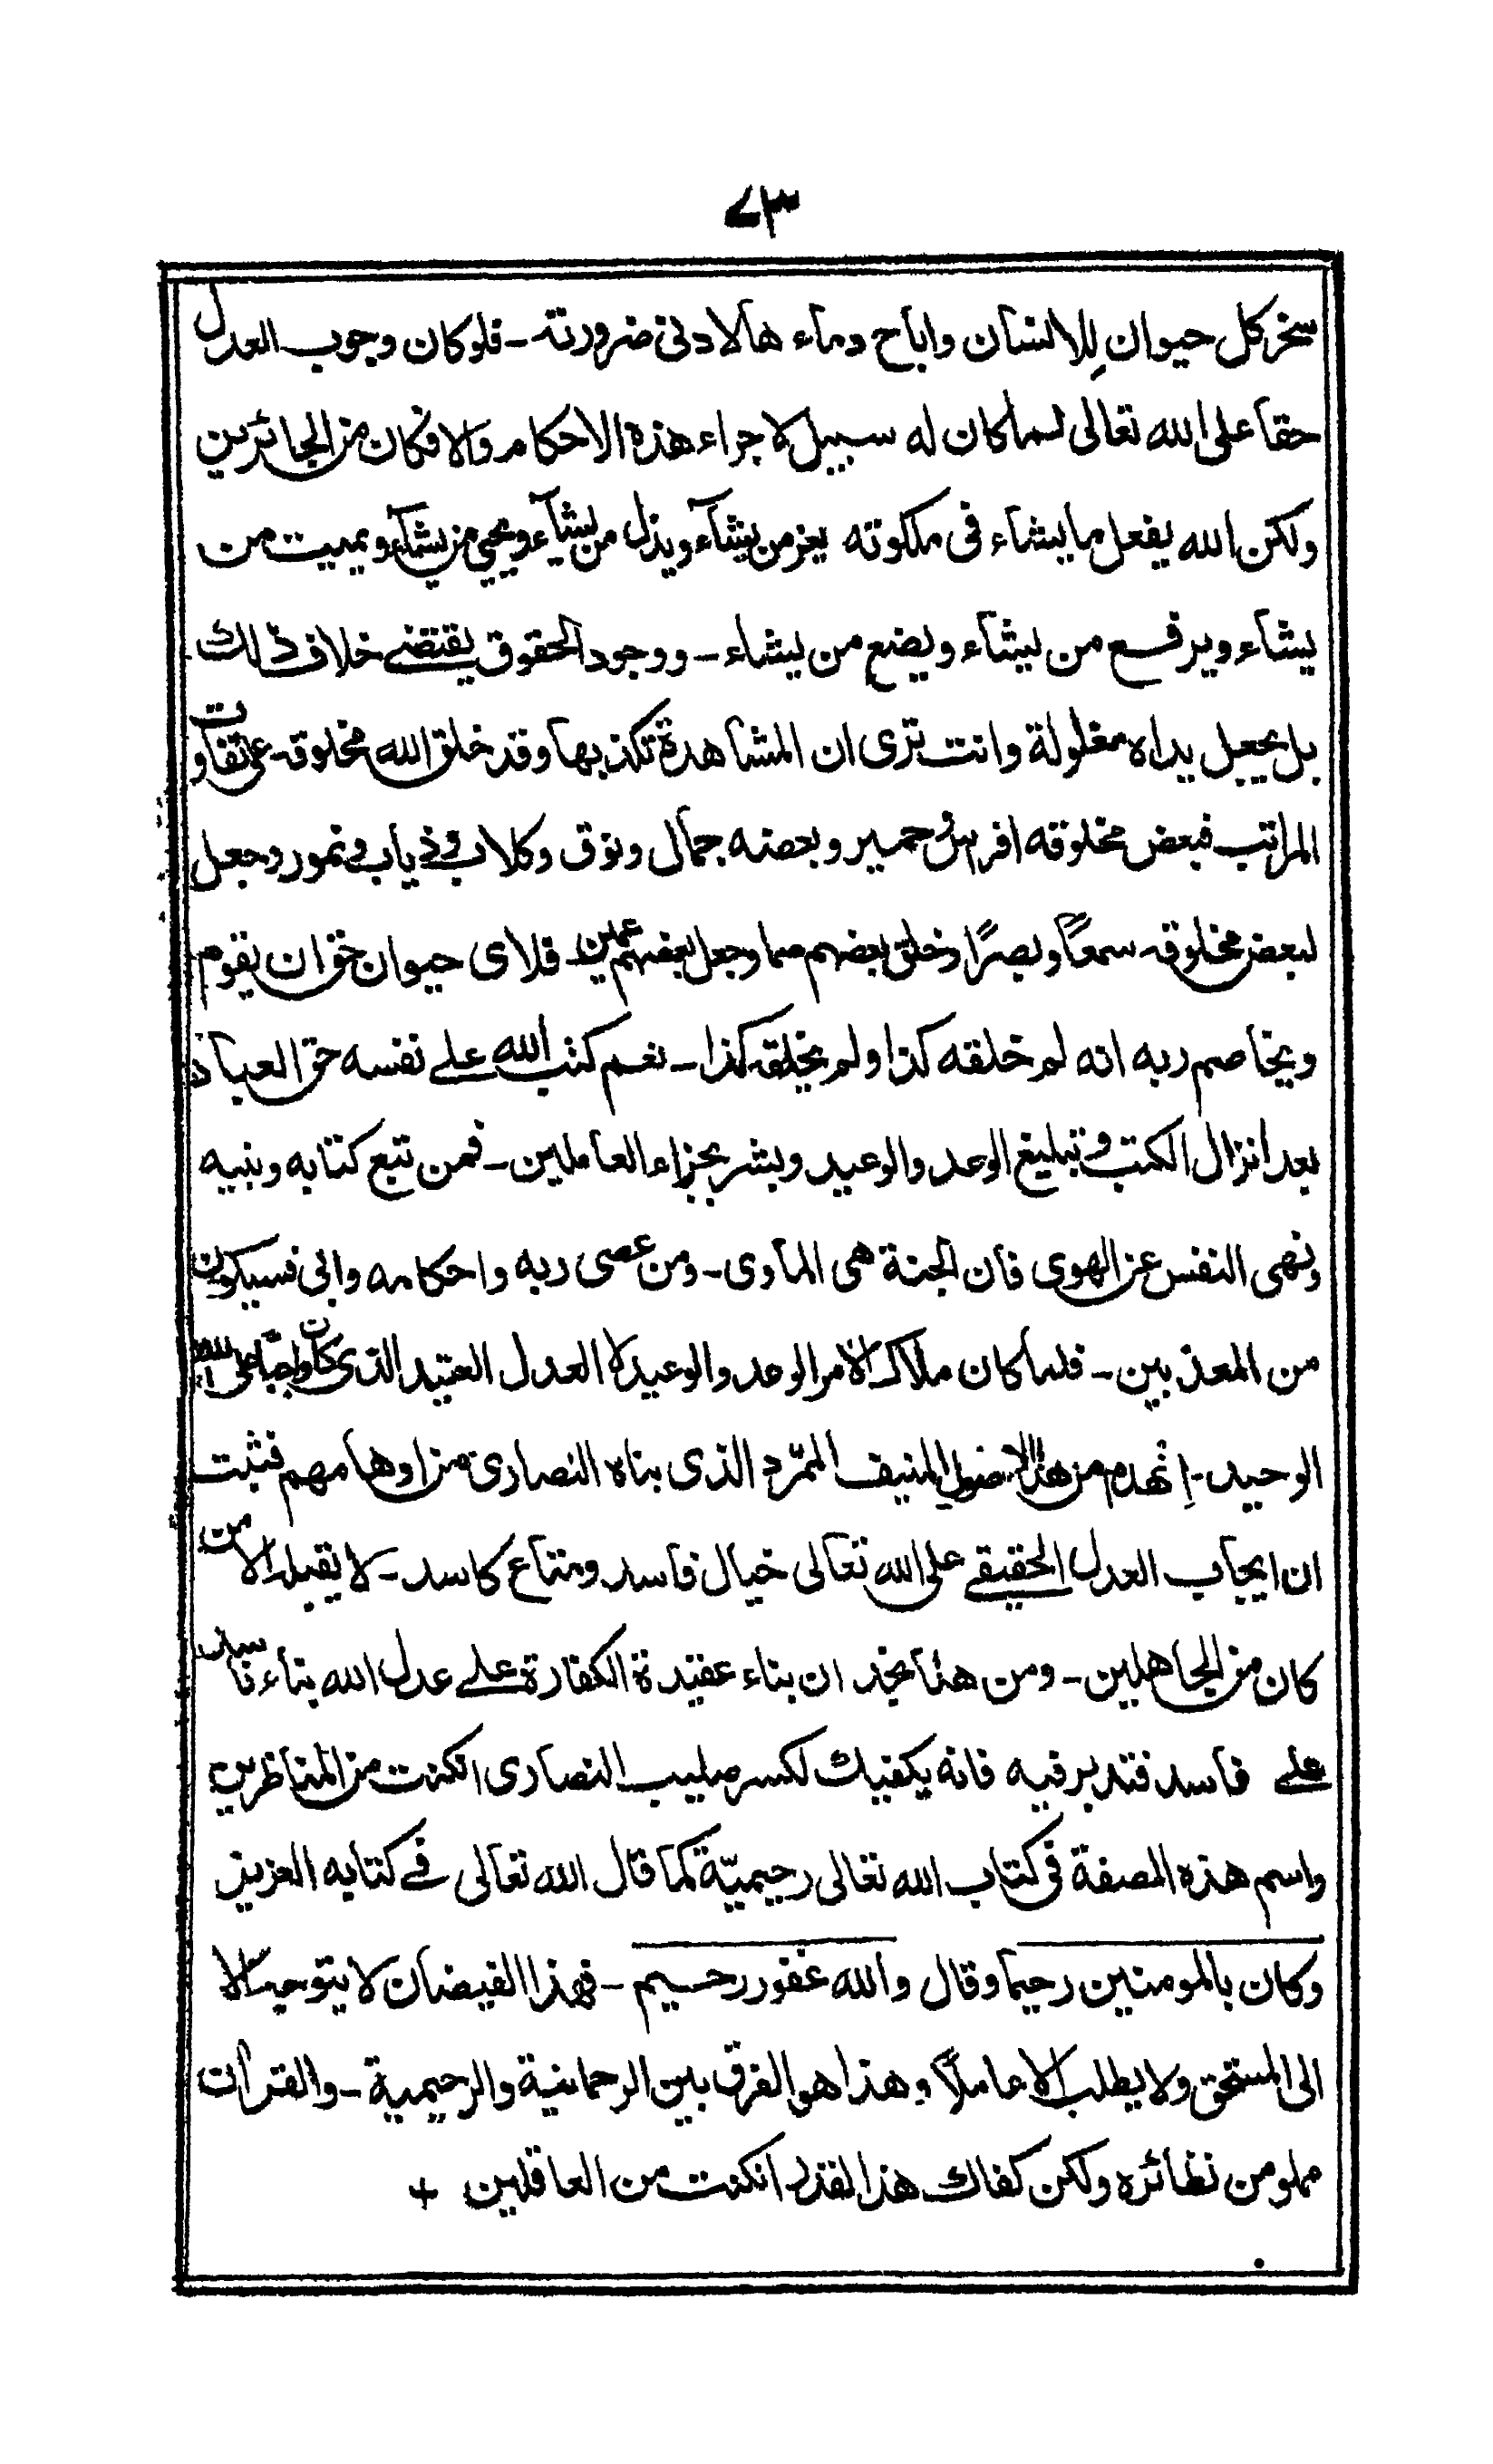 ۷۳
سخر کل حیوان للانسان واباح دماء ها لادنی ضرورته ـ فلو کان وجوب العدل
حقا علی الله تعالی لما کان له سبیل لاجراء هذه الاحکام والا فکان من الجائرین
ولکن الله یفعل ما یشاء فی ملکوته یعز من یشآء ویذل من یشآء ویحیی من یشآء ویمیت من
یشاء ویرفع من یشآء ویضع من یشاء ـ ووجود الحقوق یقتضے خلاف ذالك
بل یجعل یداه مغلولة وانت تری ان المشاهدة تکذبها وقد خلق الله مخلوقه علی تفاوت
المراتب فبعض مخلوقه افراس وحمیر وبعضه جمال ونوق وکلاب وذیاب ونمور وجعل
لبعض مخلوقه سمعاً وبصرًا وخلق بعضهم صما وجعل بعضهم عمین ـ فلای حیوان حق ان یقوم
ویخاصم ربه انه لم خلقه کذا ولم یخلقه کذا ـ نعم کتب الله علے نفسه حق العباد
بعد انزال الکتب وتبلیغ الوعد والوعید وبشر بجزاء العاملین ـ فمن تبع کتابه ونبیه
ونهی النفس عن الهوی فان الجنة هی الماوی ـ ومن عصی ربه واحکامه وابی فسیکون
من المعذبین ـ فلما کان ملاك الامر الوعد والوعید لا العدل العتید الذی کان واجبا علی الله
الوحید ـ انهدم من هذا الاصول المنیف الممرّد الذی بناه النصاری من اوهامهم فثبت
ان ایجاب العدل الحقیقے علی الله تعالی خیال فاسد ومتاع کاسد ـ لا یقبله الا من
کان من الجاهلین ـ ومن هنا نجد ان بناء عقیدة الکفارة علے عدل الله بناء فاسد
علے فاسد فتدبر فیه فانه یکفیك لکسر صلیب النصاری انکنت من المناظرین
واسم هذه الصفة فی کتاب الله تعالی رحیمیّة کما قال الله تعالی فے کتابه العزیز
وکان بالمومنین رحیما وقال والله غفور رحیم ـ فهذا الفیضان لا یتوجه الا
الی المستحق ولا یطلب الا عاملاً وهذا هو الفرق بین الرحمانیة والرحیمیة ـ والقران
مملو من نظائره ولکن کفاك هذا القدر انکنت من العاقلین +